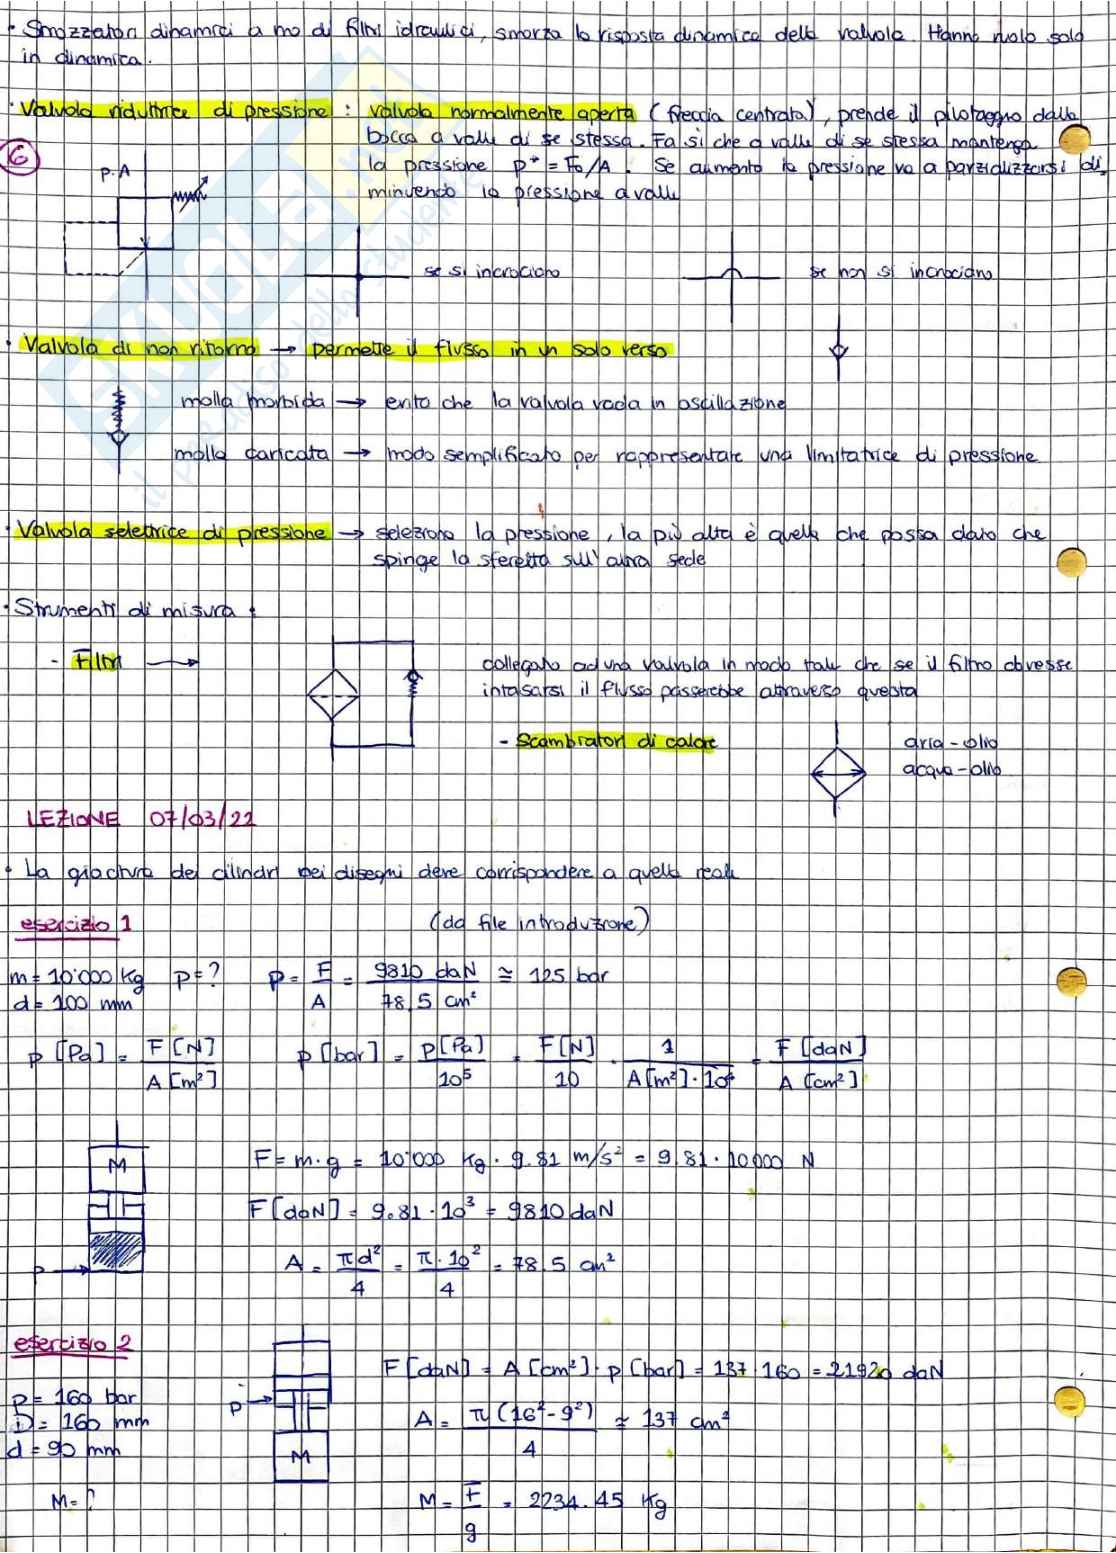 · Smorzatori dinamici a mo di filtri idraulici, smorza la risposta dinamica della valvola. Hanno ruolo solo
in dinamica.
· Valvola riduttrice di pressione : valvola normalmente aperta (freccia centrata), prende il pilotaggio dalla
bocca a valle di se stessa. Fa si che a valle di se stessa mantenga
6
la pressione p* = F0/A. Se aumenta la pressione va a parzializzarsi di,
P.A
minuendo la pressione a valle
se si incrociano
se non si incrociano
· Valvola di non ritorno → permette il flusso in un solo verso
molla morbida → evito che la valvola vada in oscillazione
molla caricata → modo semplificato per rappresentare una limitatrice di pressione
· Valvola selettrice di pressione → seleziona la pressione, la più alta è quella che passa dato che
spinge la sferetta sull'altra sede
· Strumenti di misura :
- Filtri →
collegato ad una valvola in modo tale che se il filtro dovesse
intasarsi il flusso passerebbe attraverso questa
- Scambiatori di calore
aria-olio
acqua-olio
LEZIONE 07/03/22
· La giacitura dei cilindri nei disegni deve corrispondere a quella reale
esercizio 1 (da file introduzione)
m= 10'000 kg p=? p= F/A = 9810 daN / 78,5 cm² ≅ 125 bar
d= 100 mm
p [Pa] = F [N] / A [m²] p [bar] = p [Pa] / 10⁵ = F [N] / 10 · 1 / A[m²]·10⁴ = F [daN] / A [cm²]
M
F= m·g = 10'000 kg · 9.81 m/s² = 9.81·10000 N
F [daN] = 9.81·10³ = 9810 daN
P
A = πd²/4 = π·10²/4 = 78.5 cm²
esercizio 2
F [daN] = A [cm²] · p [bar] = 137·160 = 21920 daN
p= 160 bar
P
D= 160 mm
A = π(16²-9²)/4 ≅ 137 cm²
d= 90 mm
M
M=?
M = F/g = 2234.45 kg